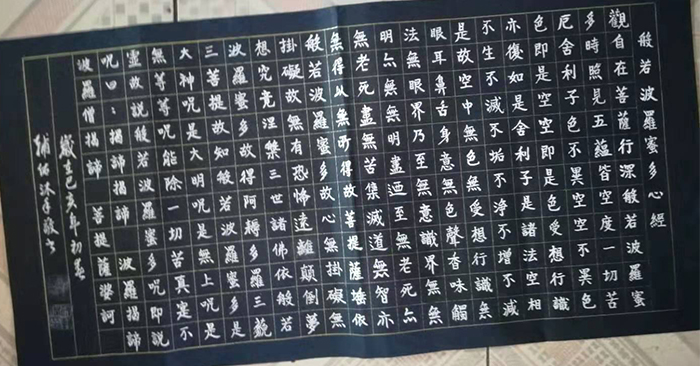 般若波羅蜜多心經
觀自在菩薩行深般若波羅蜜
多時照見五蘊皆空度一切苦
厄舍利子色不異空空不異色
色即是空空即是色受想行識
亦復如是舍利子是諸法空相
不生不滅不垢不淨不增不減
是故空中無色無受想行識無
眼耳鼻舌身意無色聲香味觸
法無眼界乃至無意識界無無
明亦無無明盡廼至無老死亦
無老死盡無苦集滅道無智亦
無得以無所得故菩提薩埵依
般若波羅蜜多故心無掛礙無
掛礙故無有恐怖遠離顛倒夢
想究竟涅槃三世諸佛依般若
波羅蜜多故得阿耨多羅三藐
三菩提故知般若波羅蜜多是
大神呪是大明呪是無上呪是
無等等呪能除一切苦真實不
虛故說般若波羅蜜多呪即說
呪曰：揭諦揭諦 波羅揭諦
波羅僧揭諦 菩提薩婆訶
歲在己亥年初
沐手敬書